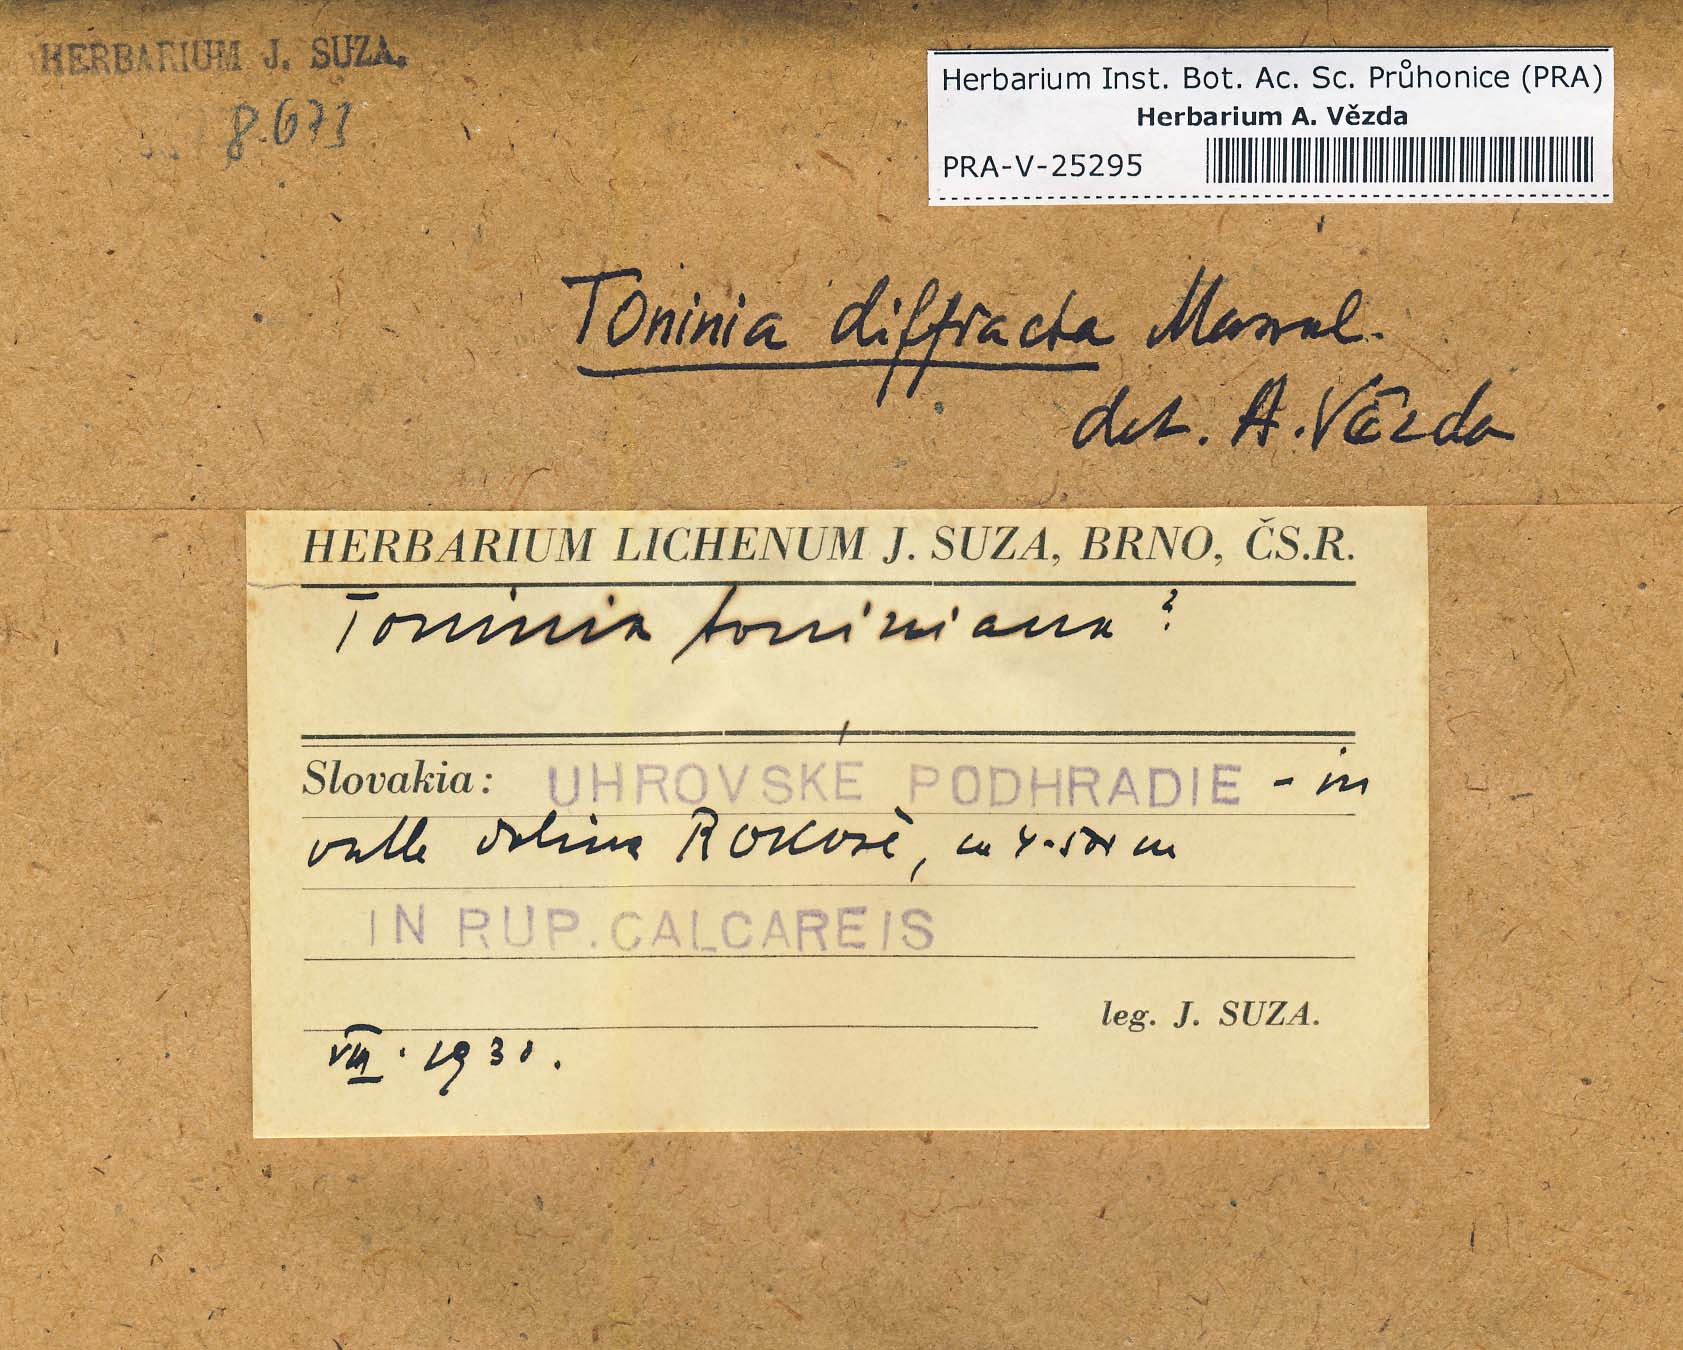 HERBARIUM J. SUZA.
8.673
Herbarium Inst. Bot. Ac. Sc. Průhonice (PRA)
Herbarium A. Vězda
PRA-V-25295
Toninia diffracta Massal.
det. A. Vězda
HERBARIUM LICHENUM J. SUZA, BRNO, ČS.R.
Toninia toniniana ?
Slovakia: UHROVSKÉ PODHRADIE - in
valle dolina Rokoše,
IN RUP. CALCAREIS
leg. J. SUZA.
1930.